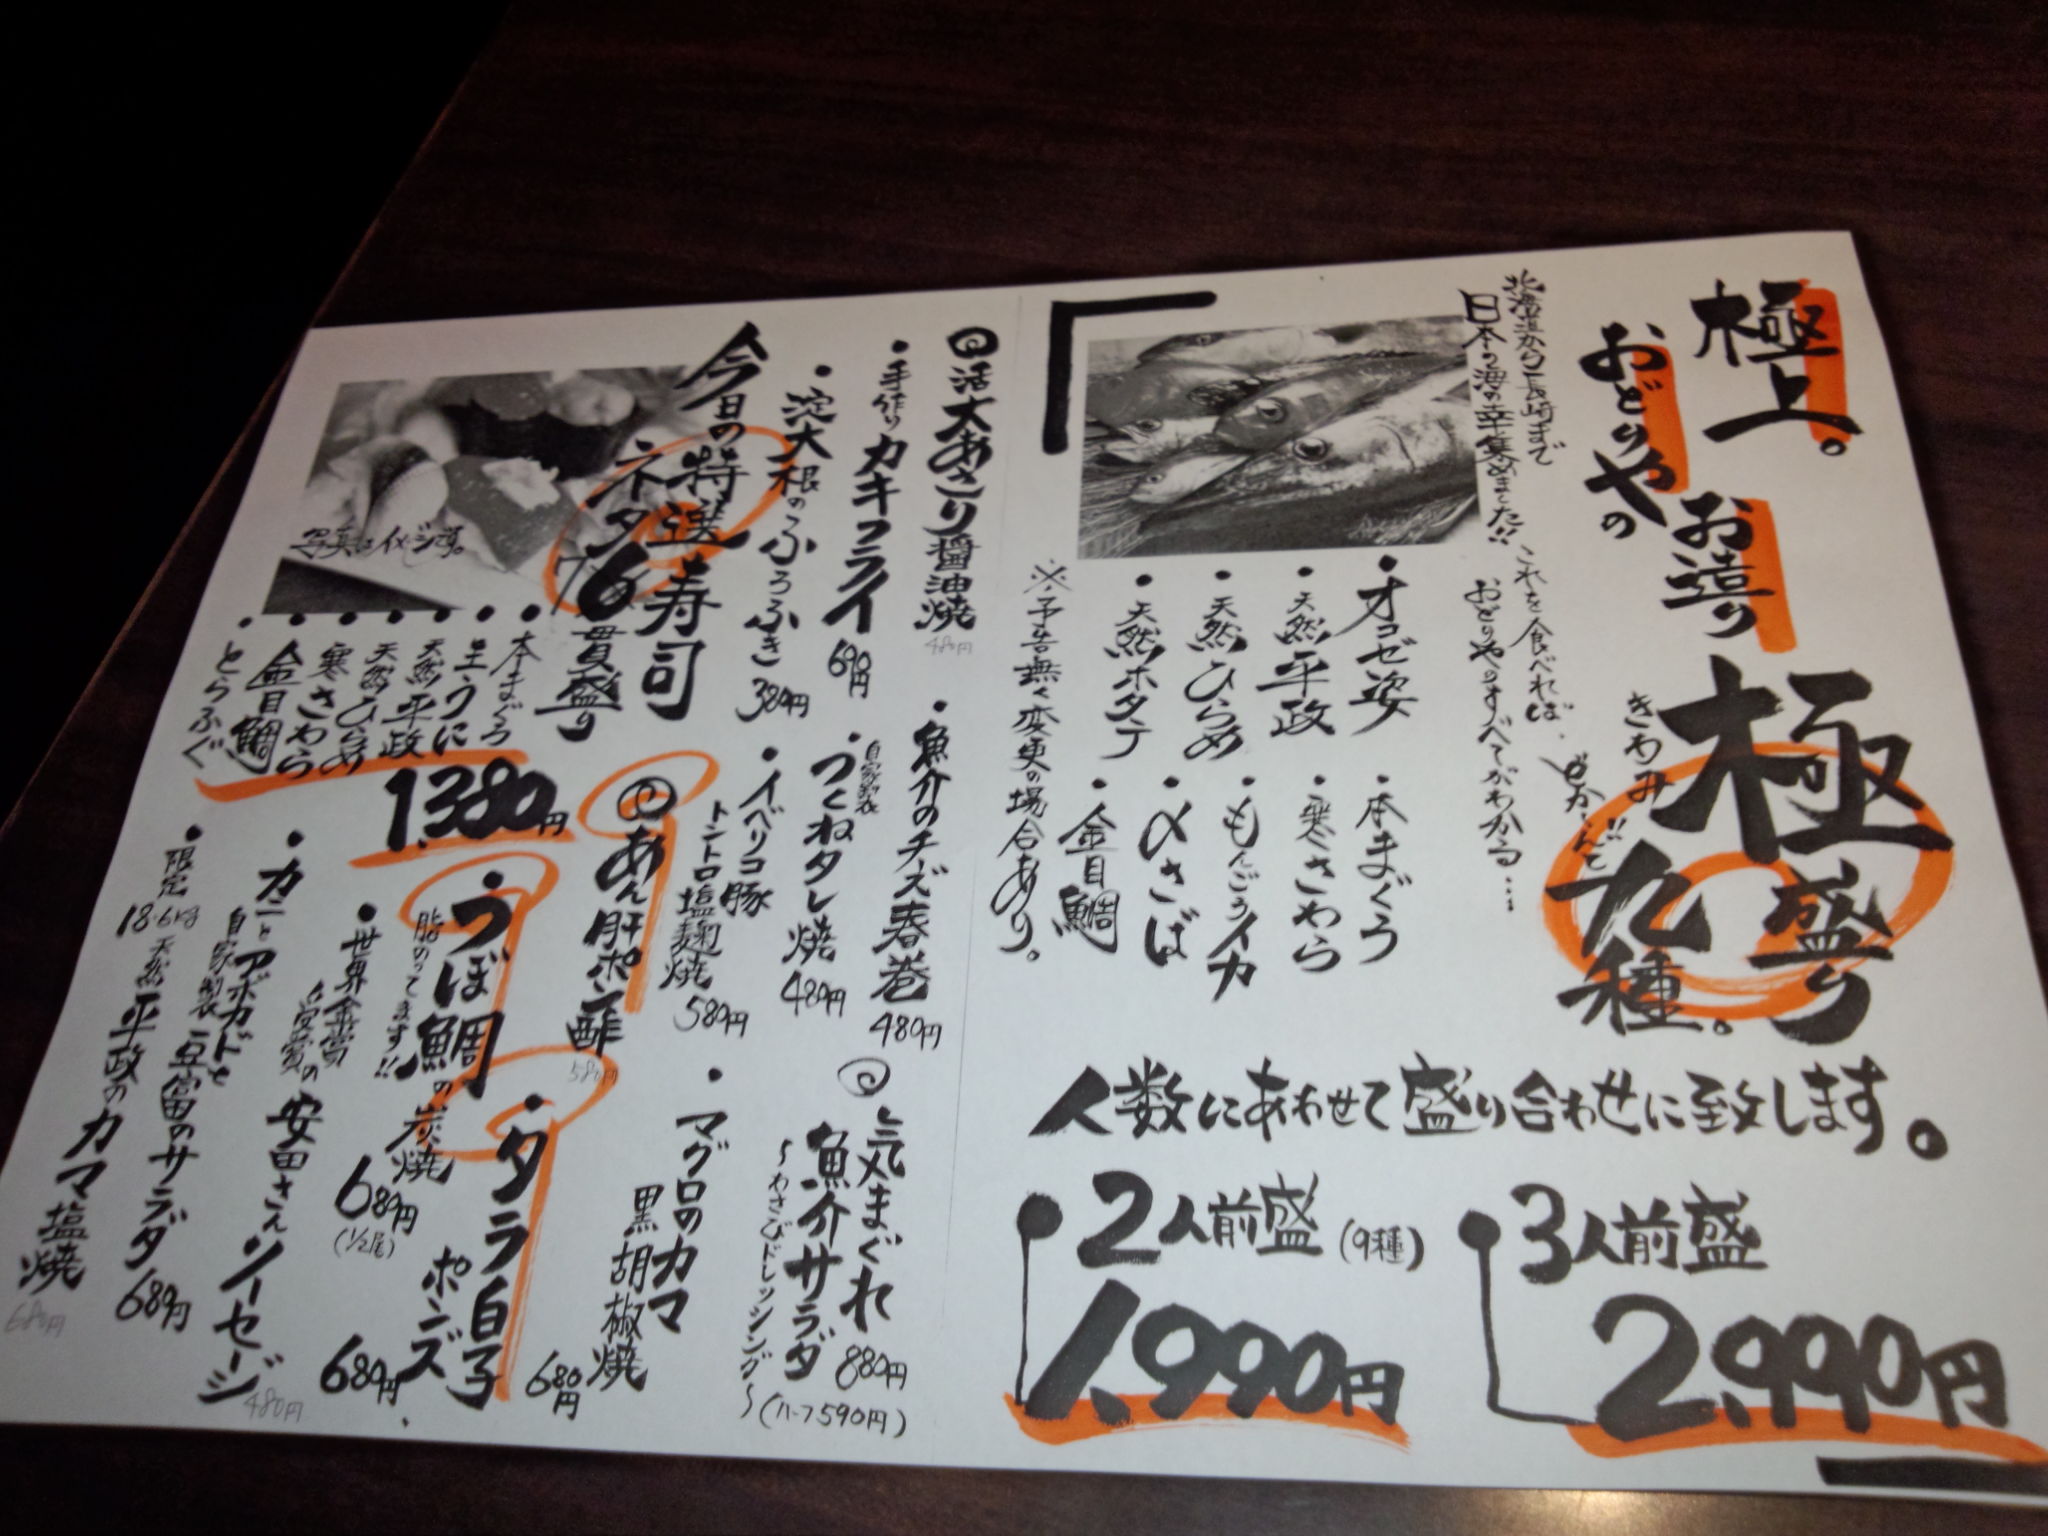 極上。
おどりやの
お造り
きわみ
極盛り
九種。
北海道から長崎まで
日本の海の幸集めました!!
これを食べれば、
おどりやのすべてがわかる…
・オコゼ姿
・天然平政
・天然ひらめ
・天然ホタテ
・本まぐろ
・寒さわら
・もんごうイカ
・〆さば
・金目鯛
※予告無く変更の場合あり。
人数にあわせて盛り合わせに致します。
3人前盛
2,990円
2人前盛(9種)
1,990円
活大あさり醤油焼
480円
・魚介のチーズ春巻
480円
気まぐれ
魚介サラダ
880円
〜わさびドレッシング〜
(ハーフ590円)
・手作りカキフライ
690円
自家製
・つくねタレ焼
480円
・マグロのカマ
黒胡椒焼
680円
・淀大根のふろふき
380円
・イベリコ豚
トントロ塩麹焼
580円
あん肝ポン酢
580円
・タラ白子
ポンズ
680円
今日の特選寿司
ネタ6貫盛り
写真はイメージです。
・本まぐろ
・生うに
・天然平政
・天然ひらめ
・寒さわら
・金目鯛
・とらふぐ
1,380円
・うぼ鯛の炭焼
脂のってます!!
680円
(1/2尾)
・世界金賞
受賞の安田さんソーセージ
480円
・カニとアボカドと
自家製豆富のサラダ
680円
・限定
18.6kg
天然平政のカマ塩焼
680円